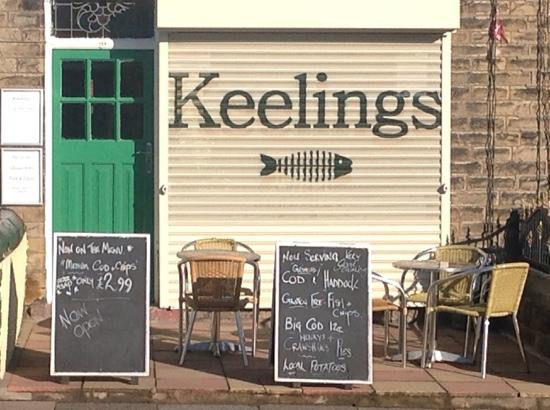 Keelings
NOW ON THE MENU
"MEDIUM COD & CHIPS"
ONLY £2.99
NOW
OPEN
NOW SERVING VERY
COD & HADDOCK
GLUTEN FREE FISH &
CHIPS.
BIG COD 12oz
HENRYS &
CRANSHINS PIES
LOCAL POTATOES